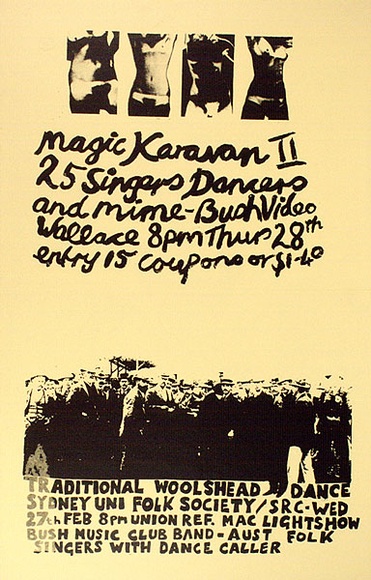 magic Karavan II
25 Singers Dancers
and mime-Bush Video
Wallace 8pm Thurs 28th
entry 15 coupons or $1-40
TRADITIONAL WOOLSHEAD DANCE
SYDNEY UNI FOLK SOCIETY/SRC-WED
27th FEB 8PM UNION REF. MAC LIGHTSHOW
BUSH MUSIC CLUB BAND-AUST FOLK
SINGERS WITH DANCE CALLER